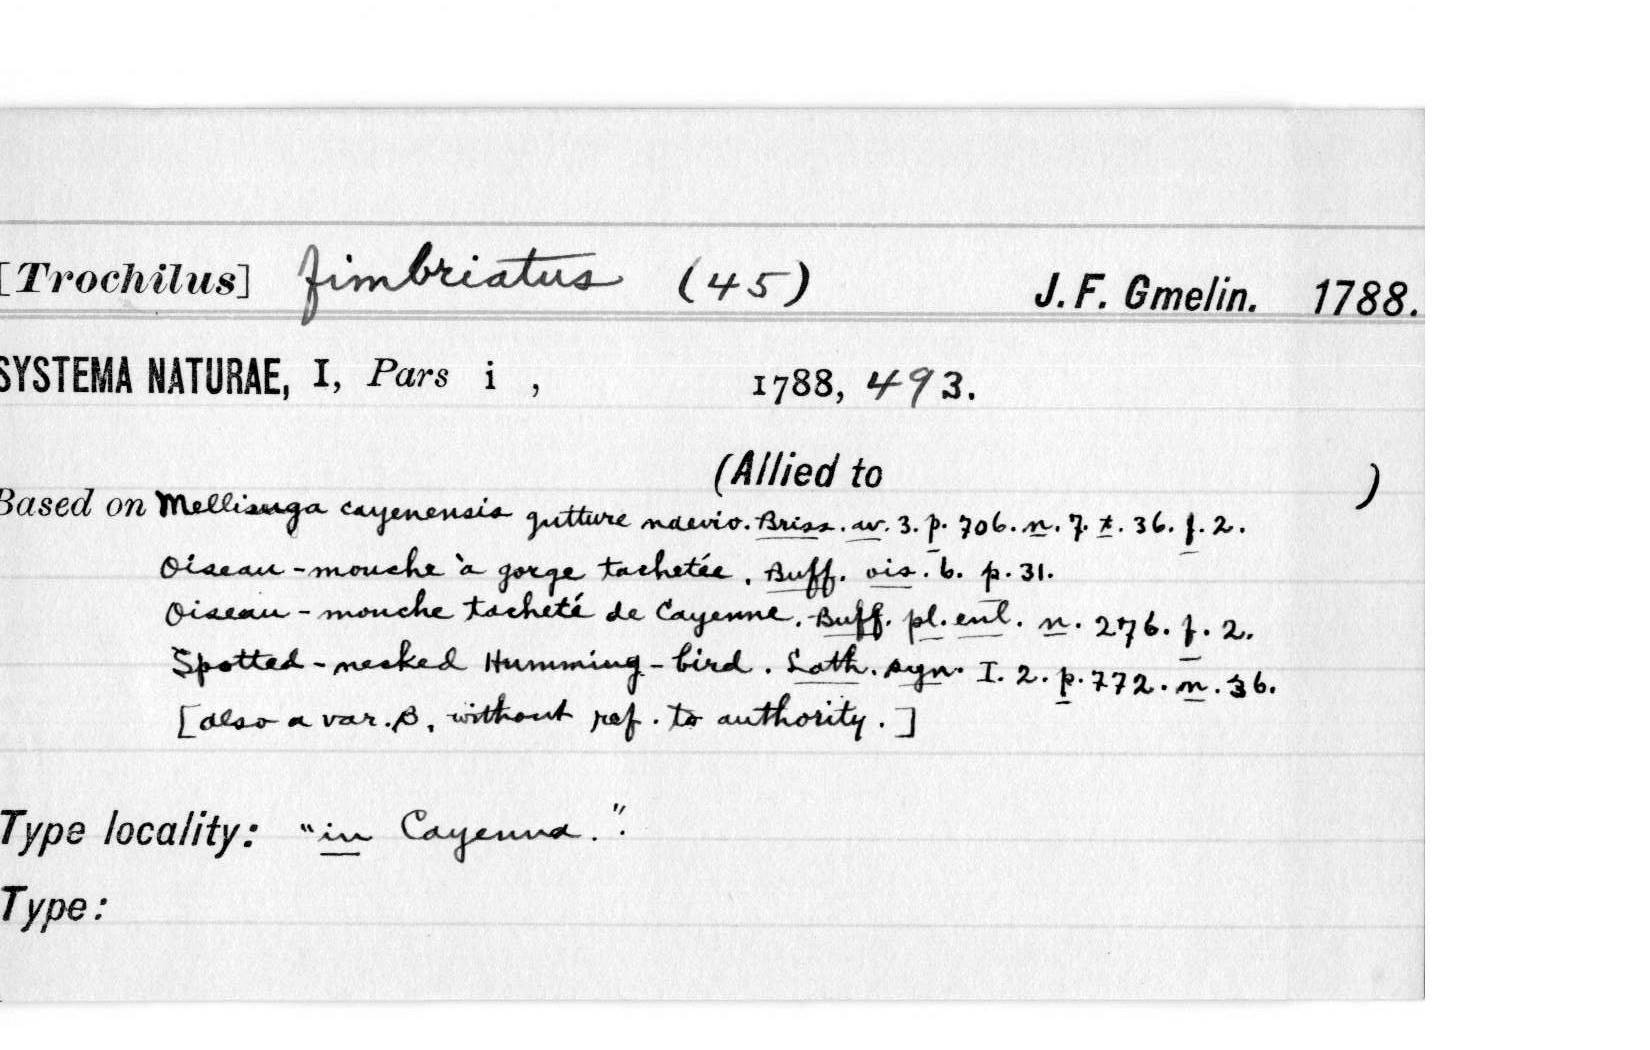 [Trochilus] fimbriatus (45) J. F. Gmelin. 1788.
SYSTEMA NATURAE, I, Pars i , 1788, 493.
(Allied to )
Based on Mellisuga cayenensis gutture naevio. Briss. av. 3. p. 706. n. 7. t. 36. f. 2.
Oiseau-mouche à gorge tachetée. Buff. ois. 6. p. 31.
Oiseau-mouche tacheté de Cayenne. Buff. pl. enl. n. 276. f. 2.
Spotted-necked Humming-bird. Lath. syn. I. 2. p. 772. n. 36.
[also a var. β, without ref. to authority.]
Type locality: "in Cayenna.".
Type: